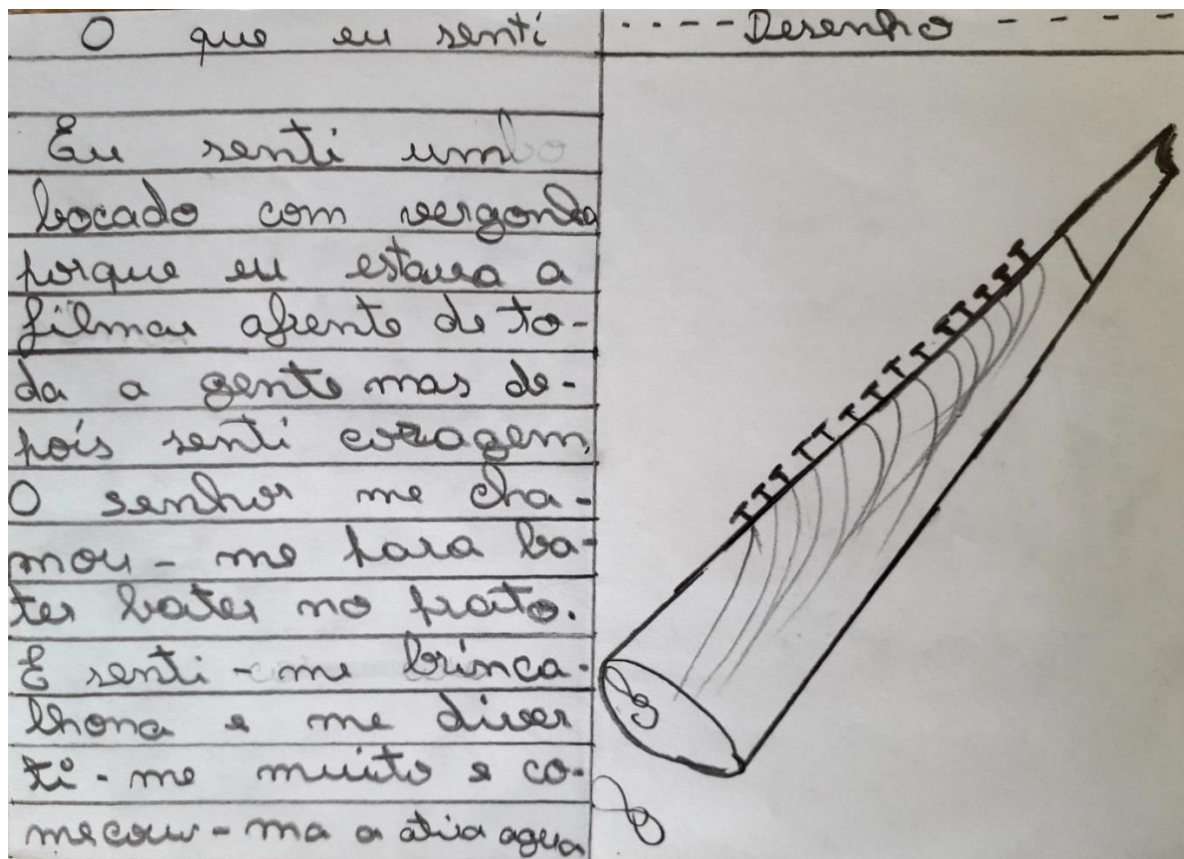 O que eu senti
Eu senti um
bocado com vergonha
porque eu estava a
filmar afrente de to-
da a gente mas de-
pois senti coragem,
O senhor me cha-
mou-me para ba-
ter bater no prato.
E senti-me brinca-
lhona e me diver
ti-me muito e co-
mecou-ma a atira agua
----Desenho----